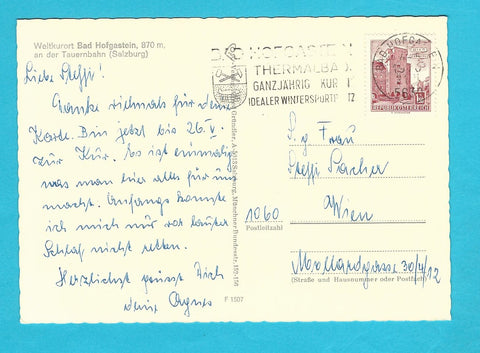 Weltkurort Bad Hofgastein, 870 m,
an der Tauernbahn (Salzburg)
Liebe Steffi!
Danke vielmals für deine
Karte. Bin jetzt bis 26.
zur Kur. Es ist einmalig
was man hier alles für uns
macht. Anfangs konnte
ich mich nur vor lauter
Schlaf nicht retten.
Herzlichst grüsst Dich
deine Agnes
F 1507
BAD HOFGASTEIN
THERMALBAD
GANZJÄHRIG KUR
IDEALER WINTERSPORTPLATZ
BAD HOFGASTEIN
5630
REPUBLIK ÖSTERREICH
S. g. Frau
Steffi Sacher
1060
Wien
Postleitzahl
Mollardgasse 30/4/12
(Straße und Hausnummer oder Postfach)